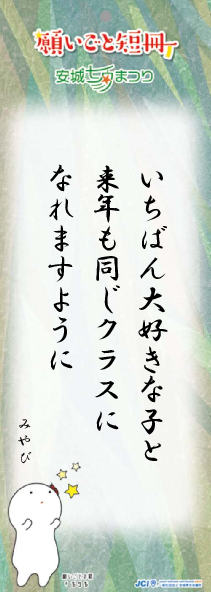 願いごと短冊
安城七夕まつり
いちばん大好きな子と
来年も同じクラスに
なれますように
みやび
JCI